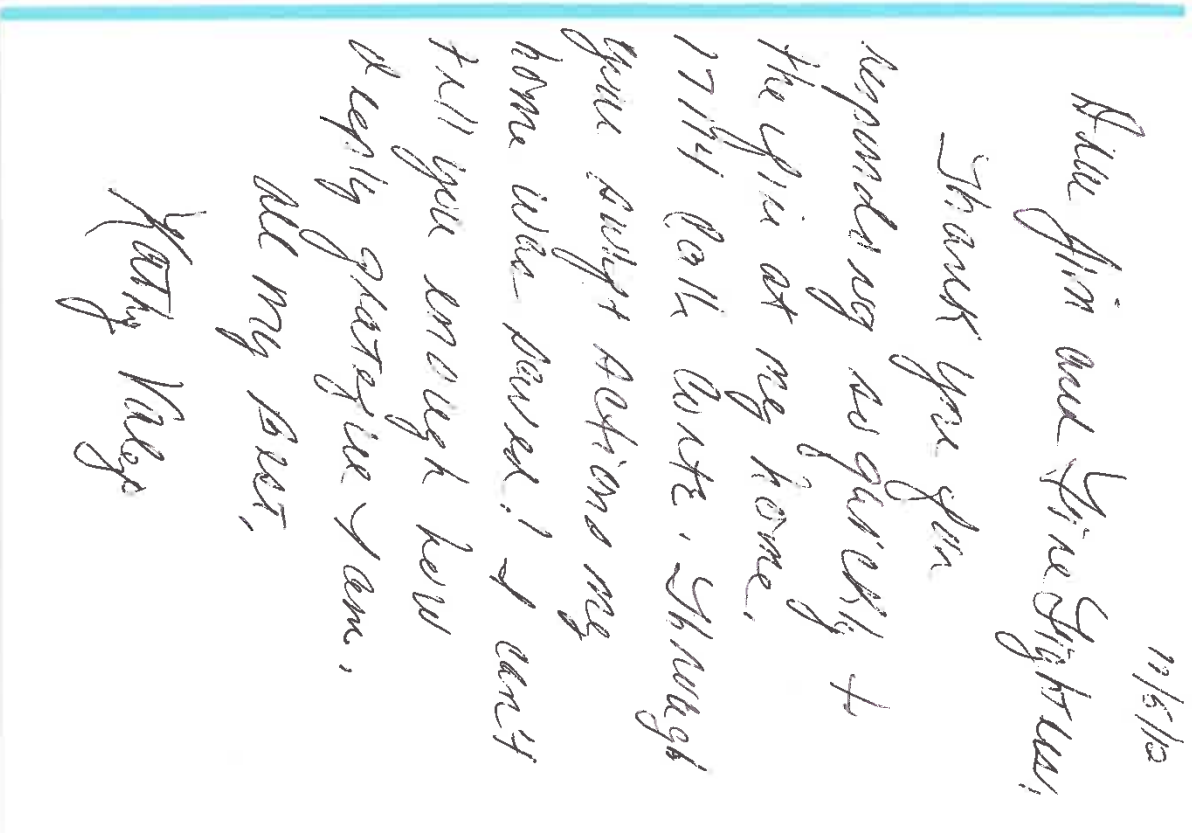 11/5/12
Dear Jim and Fire Fighters:
Thank you for
responding so quickly +
the fire at my home.
17174 Park Lane. Through
your swift actions my
home was saved! I can't
tell you enough how
deeply grateful I am.
All my best,
Kathy